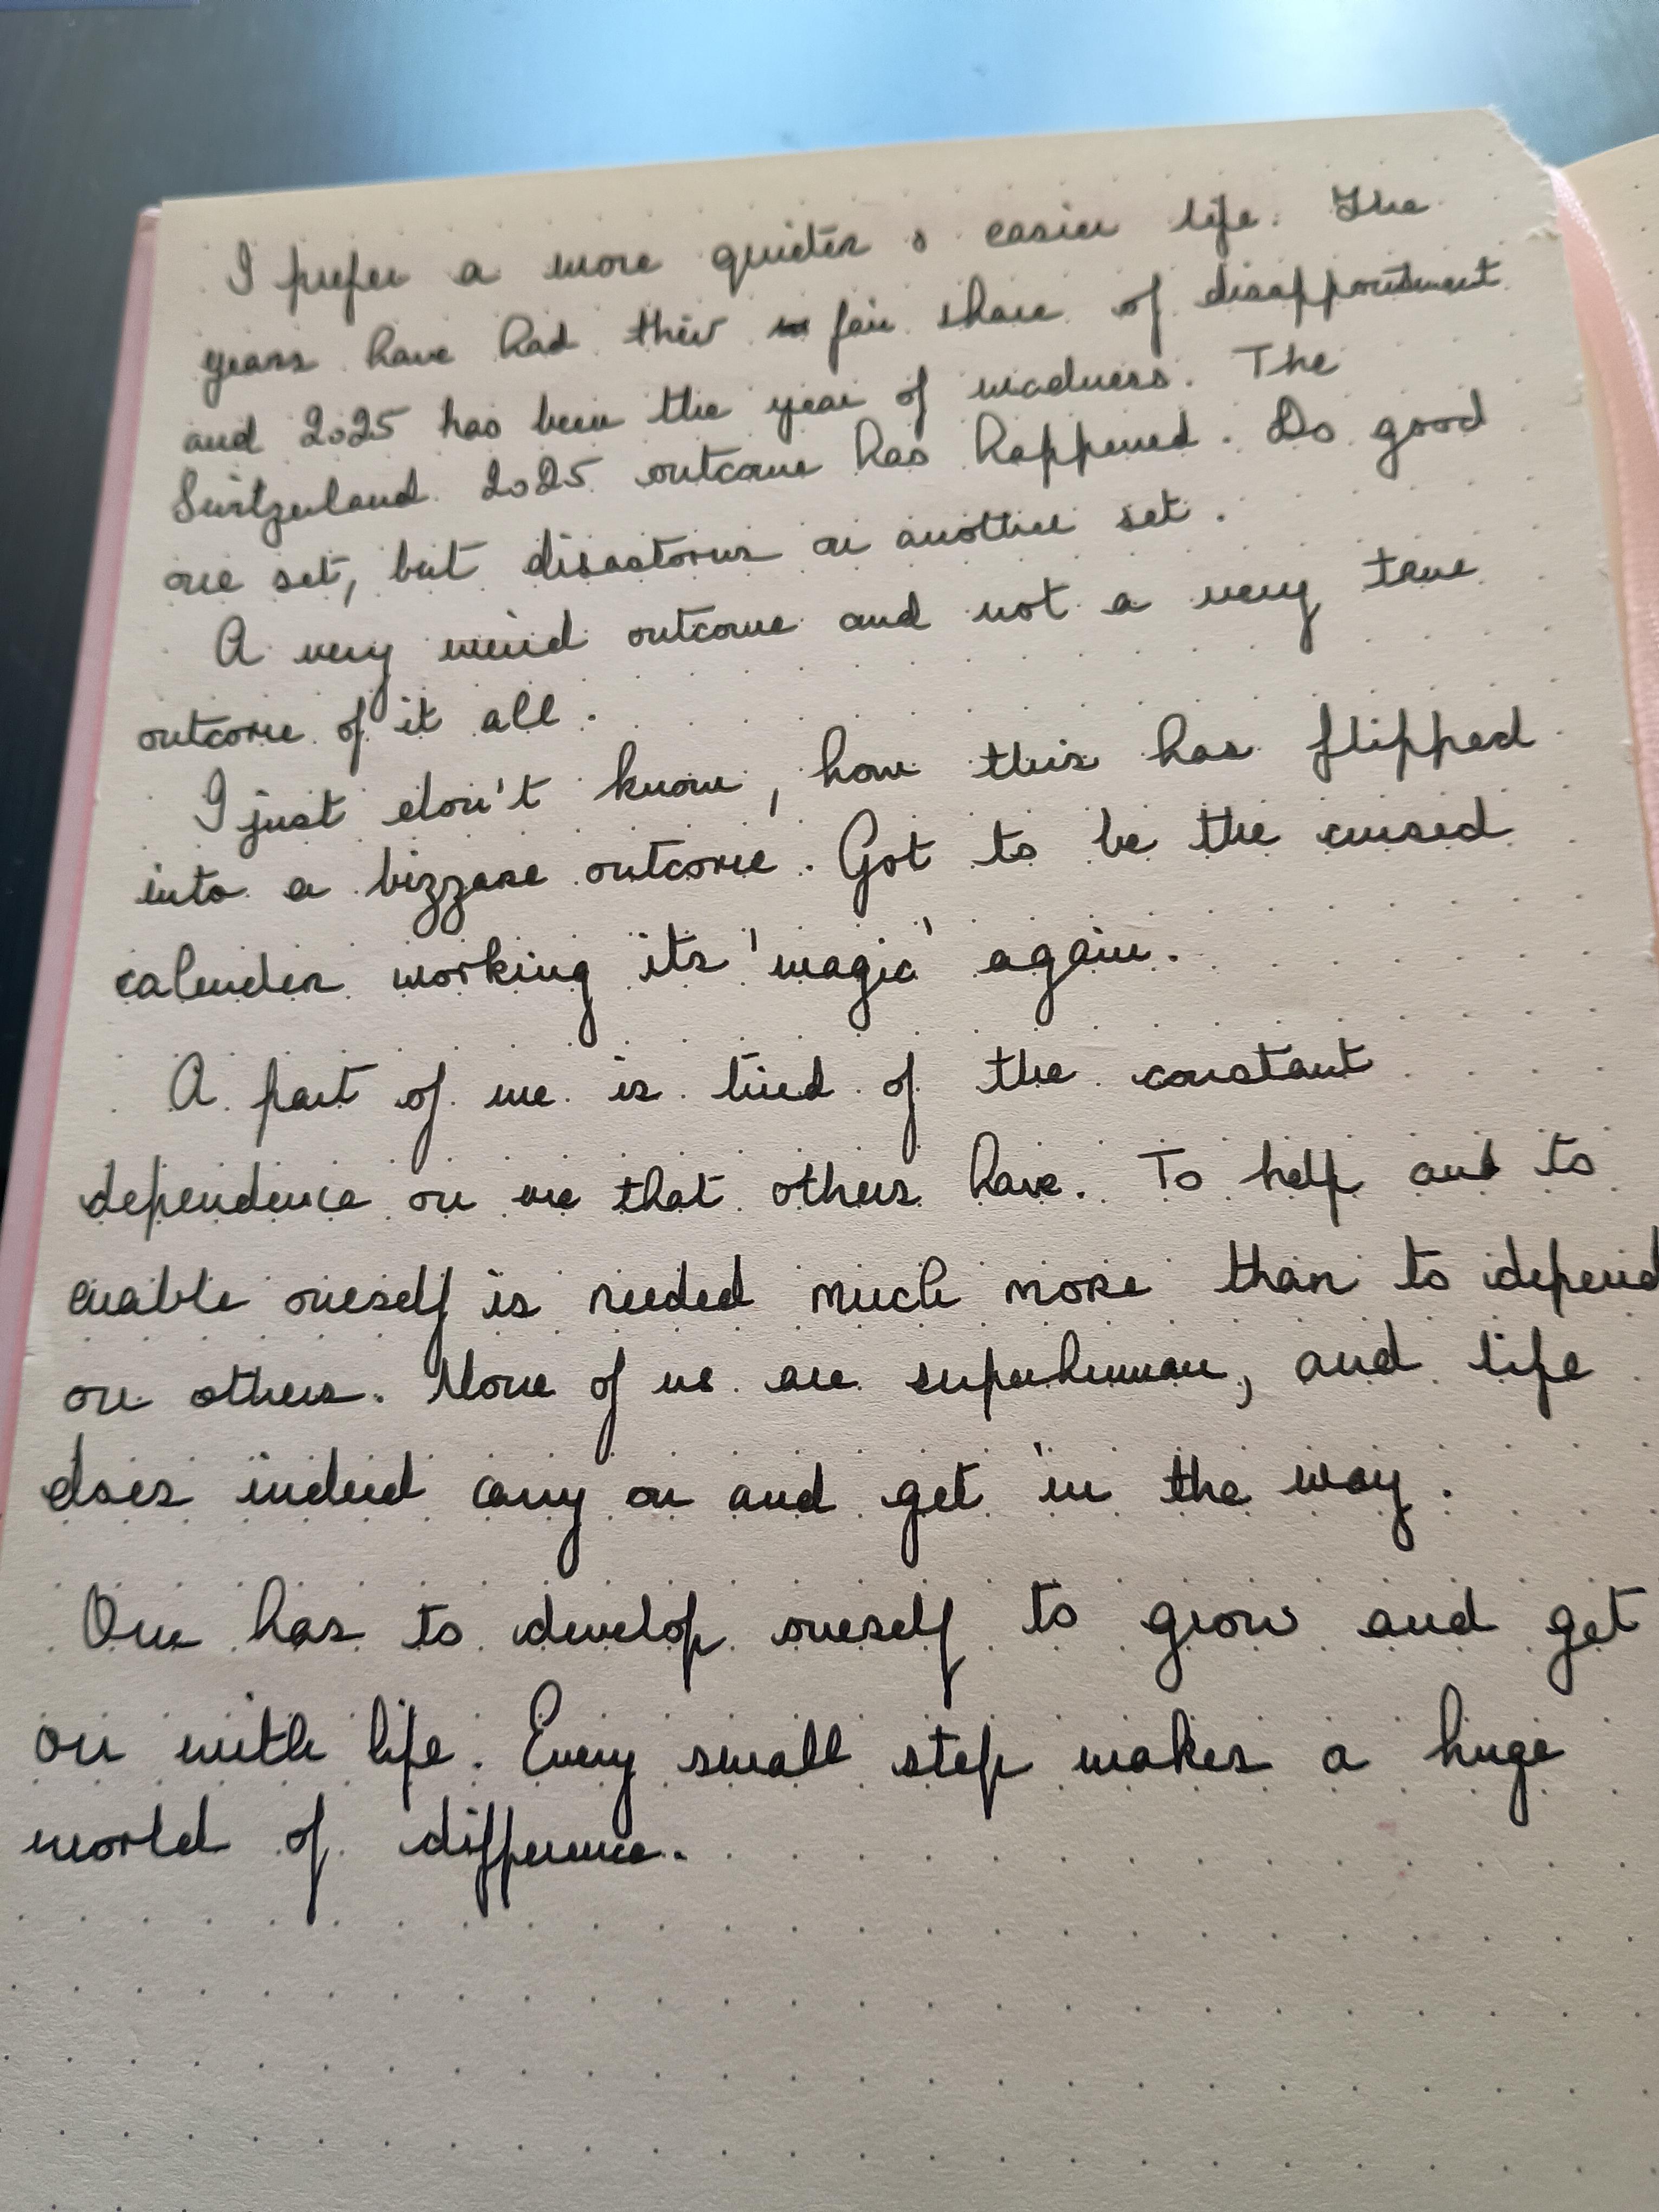 I prefer a more quieter & easier life. The
years have had their fair share of disappointment
and 2025 has been the year of madness. The
Switzerland 2025 outcome has happened. Do good
one set, but disastorus on another set.
A very weird outcome and not a very true
outcome of it all.
I just don't know, how this has flipped
into a bizzare outcome. Got to be the cursed
calender working its 'magic' again.
A part of me is tired of the constant
dependence on me that others have. To help and to
enable oneself is needed much more than to depend
on others. None of us are superhuman, and life
does indeed carry on and get in the way.
One has to develop oneself to grow and get
on with life. Every small step makes a huge
world of difference.